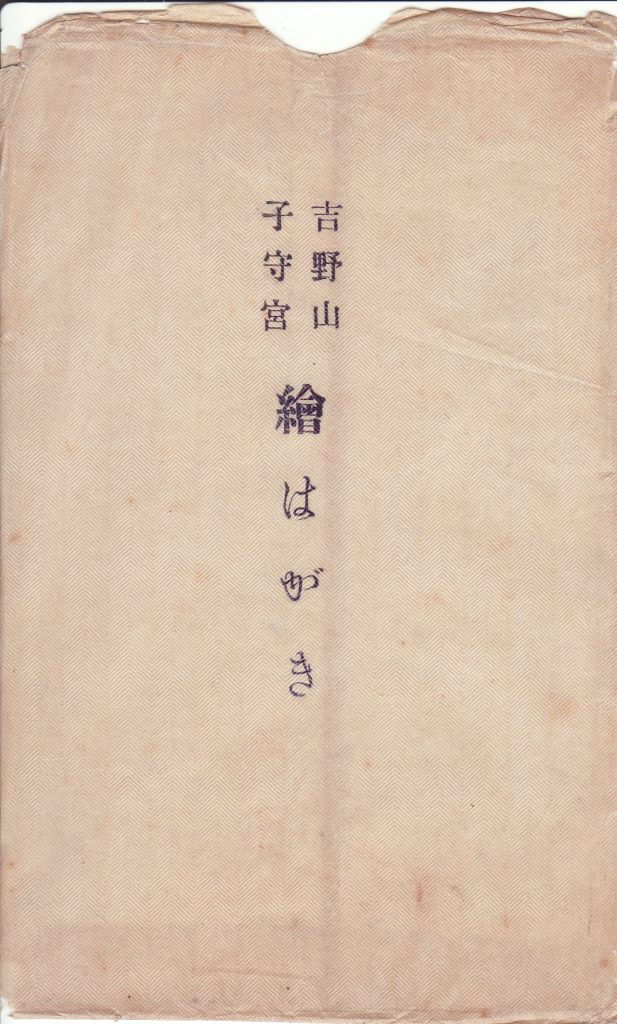 吉野山
子守宮
繪はがき